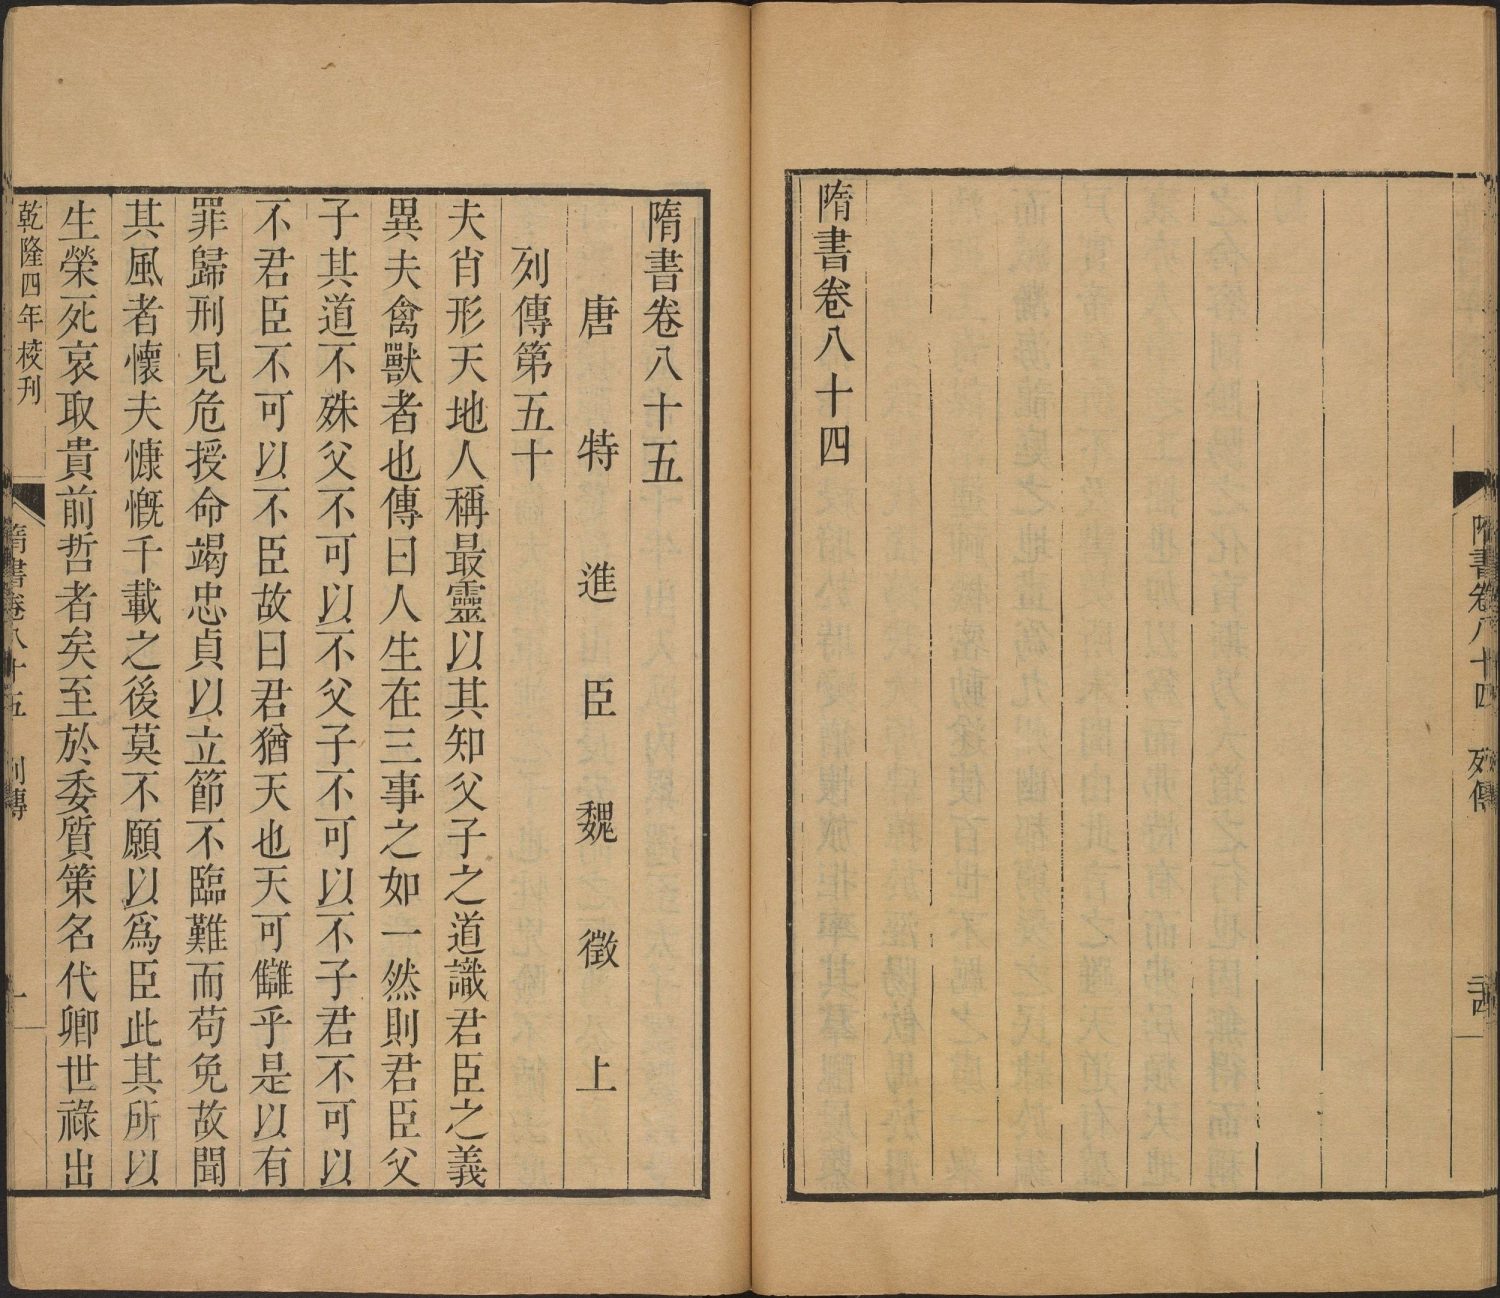 隋書卷八十四 列傳 二十四
隋書卷八十四
隋書卷八十五
唐特進臣魏徵上
列傳第五十
夫肖形天地人稱最靈以其知父子之道識君臣之義
異夫禽獸者也傳曰人生在三事之如一然則君臣父
子其道不殊父不可以不父子不可以不子君不可以
不君臣不可以不臣故曰君猶天也天可讎乎是以有
罪歸刑見危授命竭忠貞以立節不臨難而苟免故聞
其風者懷夫慷慨千載之後莫不願以爲臣此其所以
生榮死哀取貴前哲者矣至於委質策名代卿世祿出
乾隆四年校刊 隋書卷八十五 列傳 一